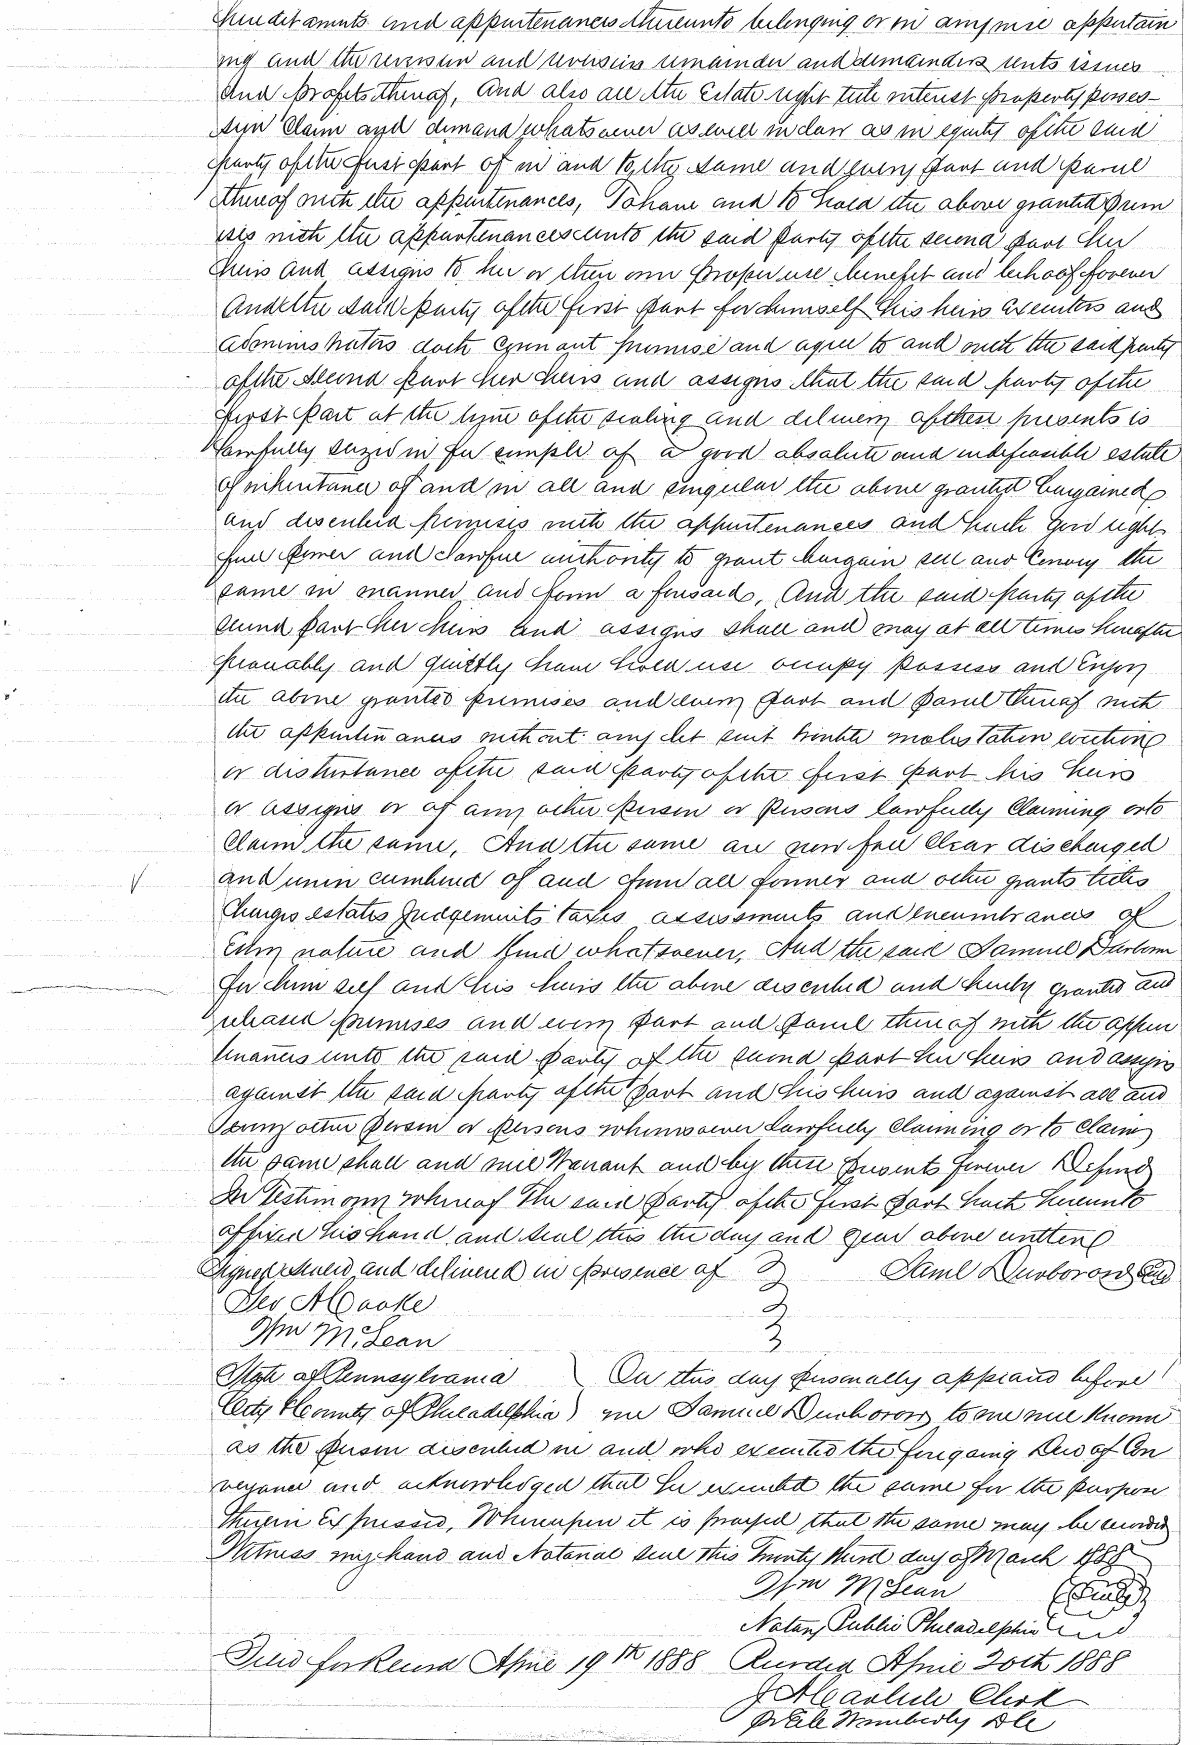 hereditaments and appurtenances thereunto belonging or in any wise appertain
ing and the reversion and reversions remainder and demainders rents issues
and profits thereof, And also all the Estate right title interest property posses-
sion Claim and demand whatsoever as well in law as in equity of the said
party of the first part of in and to the same and every part and parcel
thereof with the appurtenances, To have and to hold the above granted prem
ises with the appurtenances unto the said party of the second part her
heirs and assigns to her or their own proper use benefit and behoof forever
And the said party of the first part for himself his heirs executors and
administrators doth Covenant promise and agree to and with the said party
of the second part her heirs and assigns that the said party of the
first part at the time of the sealing and delivery of these presents is
lawfully seized in fee simple of a good absolute and indefeasible estate
of inheritance of and in all and singular the above granted bargained
and described premises with the appurtenances and hath good right
full power and lawful authority to grant bargain sell and Convey the
same in manner and form a foresaid, And the said party of the
second part her heirs and assigns shall and may at all times hereafter
peacably and quietly have hold use occupy possess and Enjoy
the above granted premises and every part and parcel thereof with
the appurtenances without any let suit trouble molestation eviction
or disturbance of the said party of the first part his heirs
or assigns or of any other person or persons lawfully Claiming or to
Claim the same, And the same are now free Clear discharged
and unin cumbered of and from all former and other grants titles
Charges estates Judgements taxes assessments and encumbrances of
Every nature and kind whatsoever, And the said Samuel Durborow
for him self and his heirs the above described and hereby granted and
released premises and every part and parcel thereof with the appur
tenances unto the said party of the second part her heirs and assigns
against the said party of the part and his heirs and against all and
Every other person or persons whomsoever Lawfully Claiming or to Claim
the same shall and will Warrant and by these presents forever Defend
In Testimony Whereof The said party of the first part hath hereunto
affixed his hand and seal this the day and year above written
Signed Sealed and delivered in presence of Saml Durborow Seal
Geo A Cooke
Wm McLean
State of Pennsylvania On this day personally appeard before
City & County of Philadelphia me Samuel Durborow to me well Known
as the person described in and who executed the foregoing Deed of Con
veyance and acknowledged that he executed the same for the purpose
therein Expressed, Whereupon it is prayed that the same may be recorded
Witness my hand and Notarial seal this Twenty third day of March 1888
Wm McLean (Seal)
Notary Public Philadelphia
Filed for Record April 19th 1888 Recorded April 20th 1888
J A Carlisle Clerk
Wimberly D C